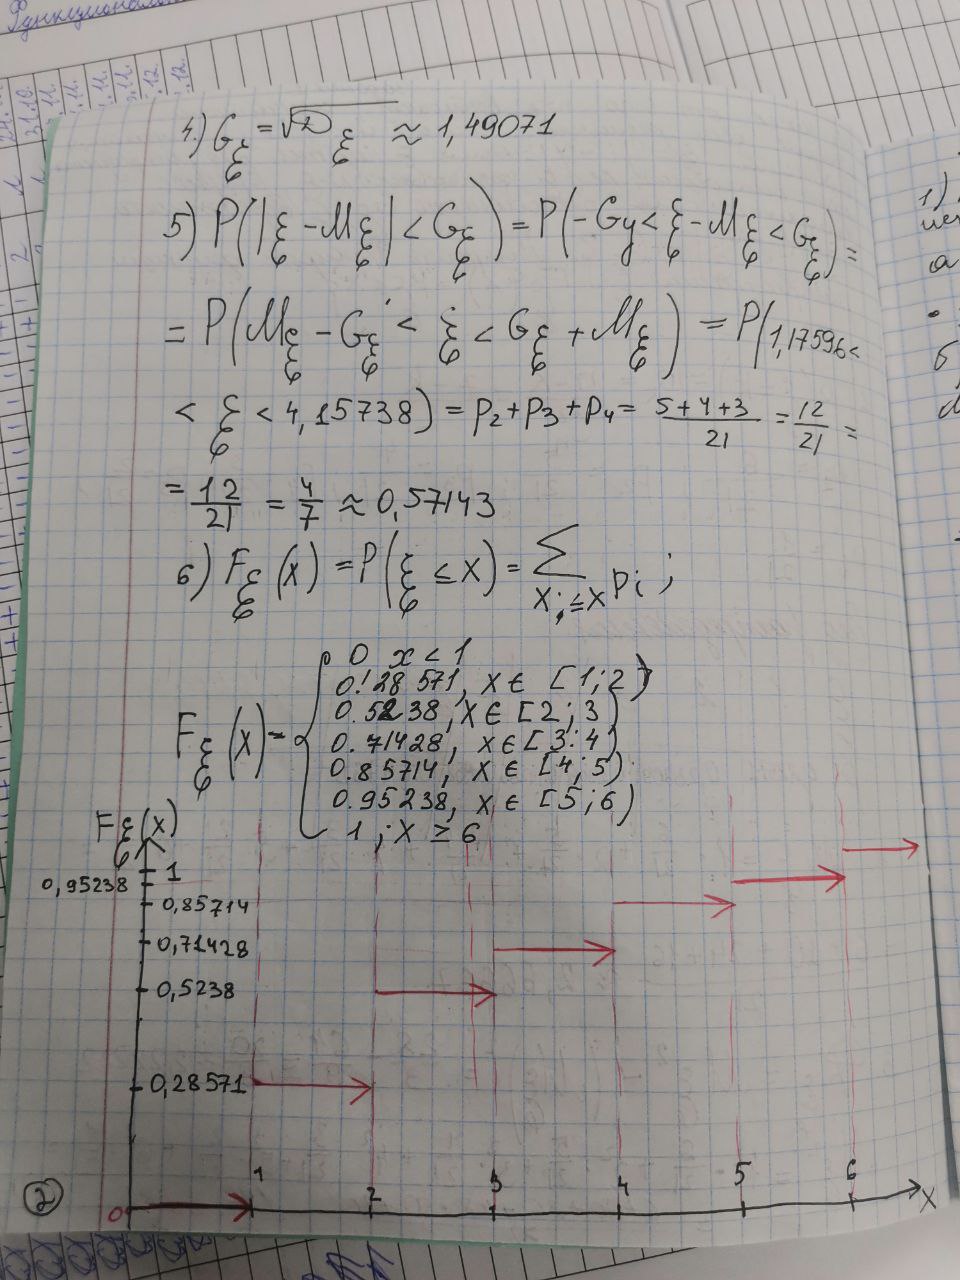 Функционал
4.) G_ξ = √D_ξ ≈ 1,49071
5) P(|ξ - M_ξ| < G_ξ) = P(-Gy < ξ - M_ξ < G_ξ) =
= P(M_ξ - G_ξ < ξ < G_ξ + M_ξ) = P(1,17596 <
< ξ < 4,15738) = p2 + p3 + p4 = (5+4+3)/21 = 12/21 =
= 12/21 = 4/7 ≈ 0,57143
6) F_ξ(x) = P(ξ ≤ x) = Σ_{xi ≤ x} pi ;
0 x < 1
0.28571, x ∈ [1; 2)
0.5238, x ∈ [2; 3)
F_ξ(x) = { 0.71428, x ∈ [3; 4)
0.85714, x ∈ [4; 5)
0.95238, x ∈ [5; 6)
1 ; x ≥ 6
F_ξ(x)
1
0,95238
0,85714
0,71428
0,5238
0,28571
0 1 2 3 4 5 6 x
2
1)
а
б